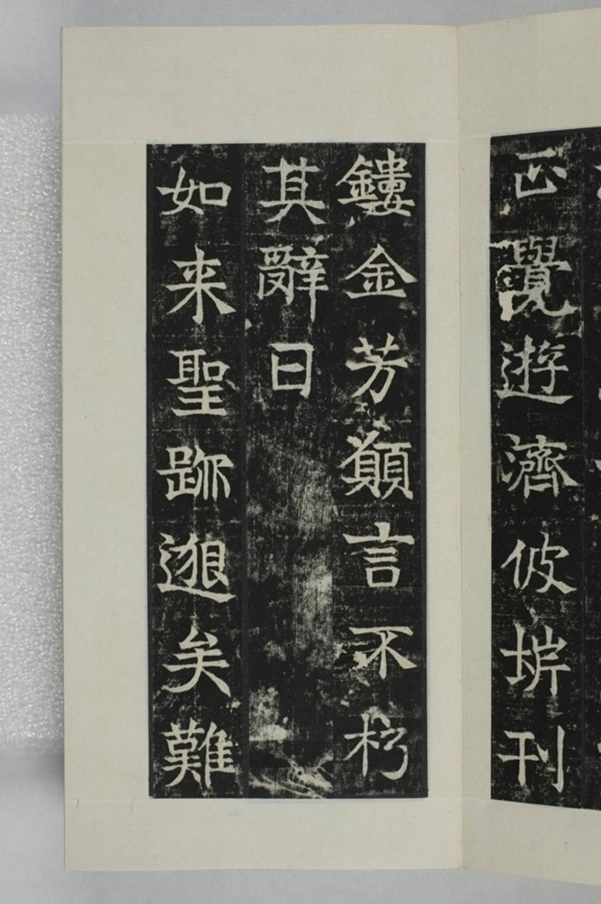 正覺遊濟彼刊
鏤金芳願言不朽
其辭曰
如来聖跡邈矣難